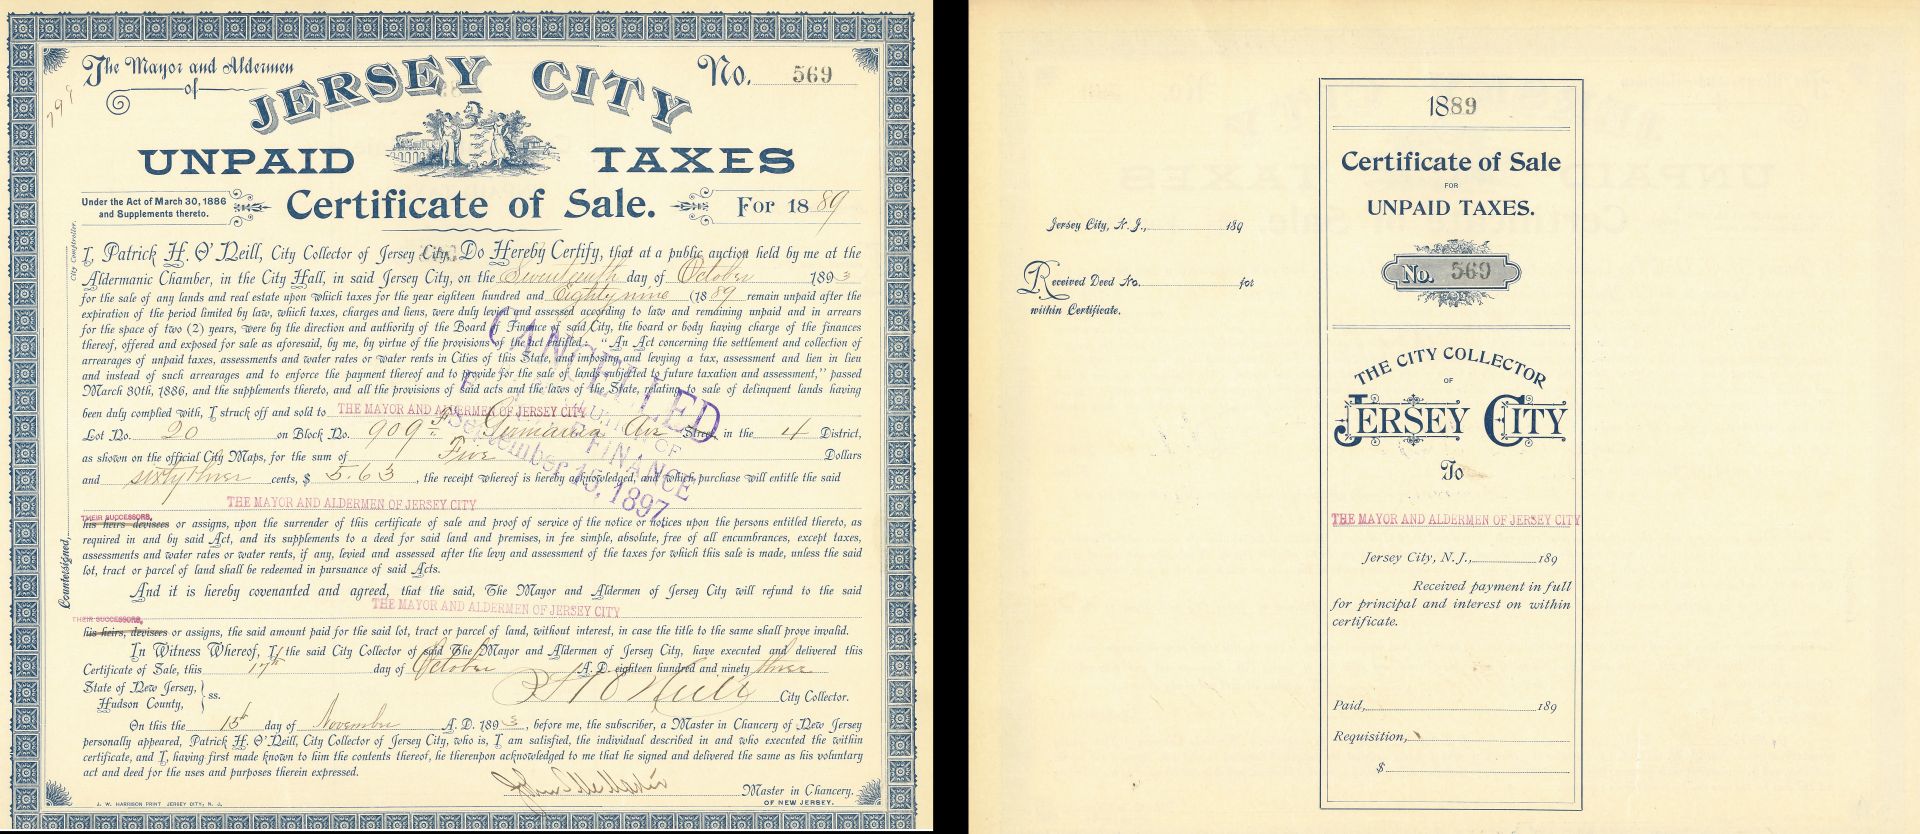 The Mayor and Aldermen
of
JERSEY CITY
No. 569
799
UNPAID TAXES
Under the Act of March 30, 1886
and Supplements thereto.
Certificate of Sale.
For 1889
City Comptroller.
Countersigned,
I, Patrick H. O'Neill, City Collector of Jersey City, Do Hereby Certify, that at a public auction held by me at the
Aldermanic Chamber, in the City Hall, in said Jersey City, on the Seventeenth day of October 1893
for the sale of any lands and real estate upon which taxes for the year eighteen hundred and Eighty nine (1889 remain unpaid after the
expiration of the period limited by law, which taxes, charges and liens, were duly levied and assessed according to law and remaining unpaid and in arrears
for the space of two (2) years, were by the direction and authority of the Board of Finance of said City, the board or body having charge of the finances
thereof, offered and exposed for sale as aforesaid, by me, by virtue of the provisions of the act entitled: "An Act concerning the settlement and collection of
arrearages of unpaid taxes, assessments and water rates or water rents in Cities of this State, and imposing and levying a tax, assessment and lien in lieu
and instead of such arrearages and to enforce the payment thereof and to provide for the sale of lands subjected to future taxation and assessment," passed
March 30th, 1886, and the supplements thereto, and all the provisions of said acts and the laws of the State, relating to sale of delinquent lands having
been duly complied with, I struck off and sold to THE MAYOR AND ALDERMEN OF JERSEY CITY
Lot No. 20 on Block No. 909 Germania Av Street, in the 4 District,
as shown on the official City Maps, for the sum of Five Dollars
and sixty three cents, $ 5.63, the receipt whereof is hereby acknowledged, and which purchase will entitle the said
THE MAYOR AND ALDERMEN OF JERSEY CITY
THEIR SUCCESSORS,
his heirs devisees or assigns, upon the surrender of this certificate of sale and proof of service of the notice or notices upon the persons entitled thereto, as
required in and by said Act, and its supplements to a deed for said land and premises, in fee simple, absolute, free of all encumbrances, except taxes,
assessments and water rates or water rents, if any, levied and assessed after the levy and assessment of the taxes for which this sale is made, unless the said
lot, tract or parcel of land shall be redeemed in pursuance of said Acts.
And it is hereby covenanted and agreed, that the said, The Mayor and Aldermen of Jersey City will refund to the said
THE MAYOR AND ALDERMEN OF JERSEY CITY
THEIR SUCCESSORS,
his heirs, devisees or assigns, the said amount paid for the said lot, tract or parcel of land, without interest, in case the title to the same shall prove invalid.
In Witness Whereof, I, the said City Collector of said The Mayor and Aldermen of Jersey City, have executed and delivered this
Certificate of Sale, this 17th day of October A. D. eighteen hundred and ninety three
State of New Jersey,
Hudson County, } ss.
P H O'Neill City Collector.
On this the 15th day of November A. D. 1893, before me, the subscriber, a Master in Chancery of New Jersey
personally appeared, Patrick H. O'Neill, City Collector of Jersey City, who is, I am satisfied, the individual described in and who executed the within
certificate, and I, having first made known to him the contents thereof, he thereupon acknowledged to me that he signed and delivered the same as his voluntary
act and deed for the uses and purposes therein expressed.
Master in Chancery.
OF NEW JERSEY.
J. W. HARRISON PRINT JERSEY CITY, N. J.
CANCELLED
OF
FINANCE
September 15, 1897
Jersey City, N. J., 189
Received Deed No. for
within Certificate.
1889
Certificate of Sale
FOR
UNPAID TAXES.
No. 569
THE CITY COLLECTOR
OF
JERSEY CITY
To
THE MAYOR AND ALDERMEN OF JERSEY CITY
Jersey City, N. J., 189
Received payment in full
for principal and interest on within
certificate.
Paid, 189
Requisition,
$